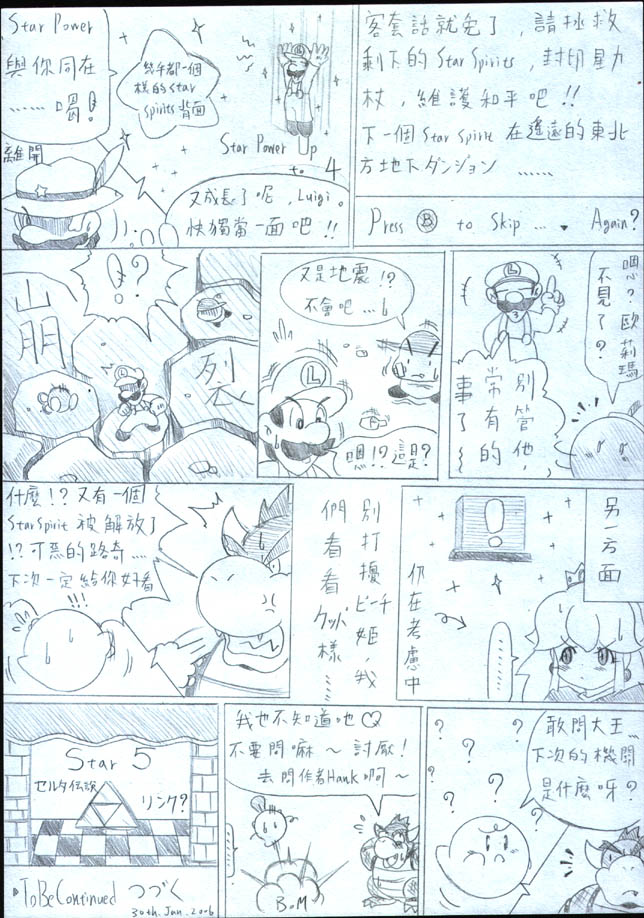 客套話就免了，請拯救
剩下的Star Spirits，封印星力
杖，維護和平吧!!
下一個Star Spirit在遙遠的東北
方地下ダンジョン ……
Press Ⓑ to Skip .... Again?
Star Power
與你同在
……喝!
離開
幾乎都一個
樣的Star
Spirits背面
Star Power Up
to 4
又成長了呢，Luigi。
快獨當一面吧!!
嗯？歐莉瑪
不見了？
L
別管他，
常有的
事了
又是地震!?
不會吧...
L
嗯!?這是?
!?
山崩
裂
另一方面
!
仍在考慮中
別打擾ピーチ姫，我
們看看クッパ様……
什麼!?又有一個
Star Spirit被解放了
!?可惡的路奇....
下次一定給你好看
!!!
敢問大王...
下次的機關
是什麼呀?
? ? ? ? ? ?
我也不知道吔♡
不要問嘛～討厭!
去問作者Hank啊～
BoM
Star 5
ゼルダ伝説
リンク?
To Be Continued つづく
30th. Jan. 2006